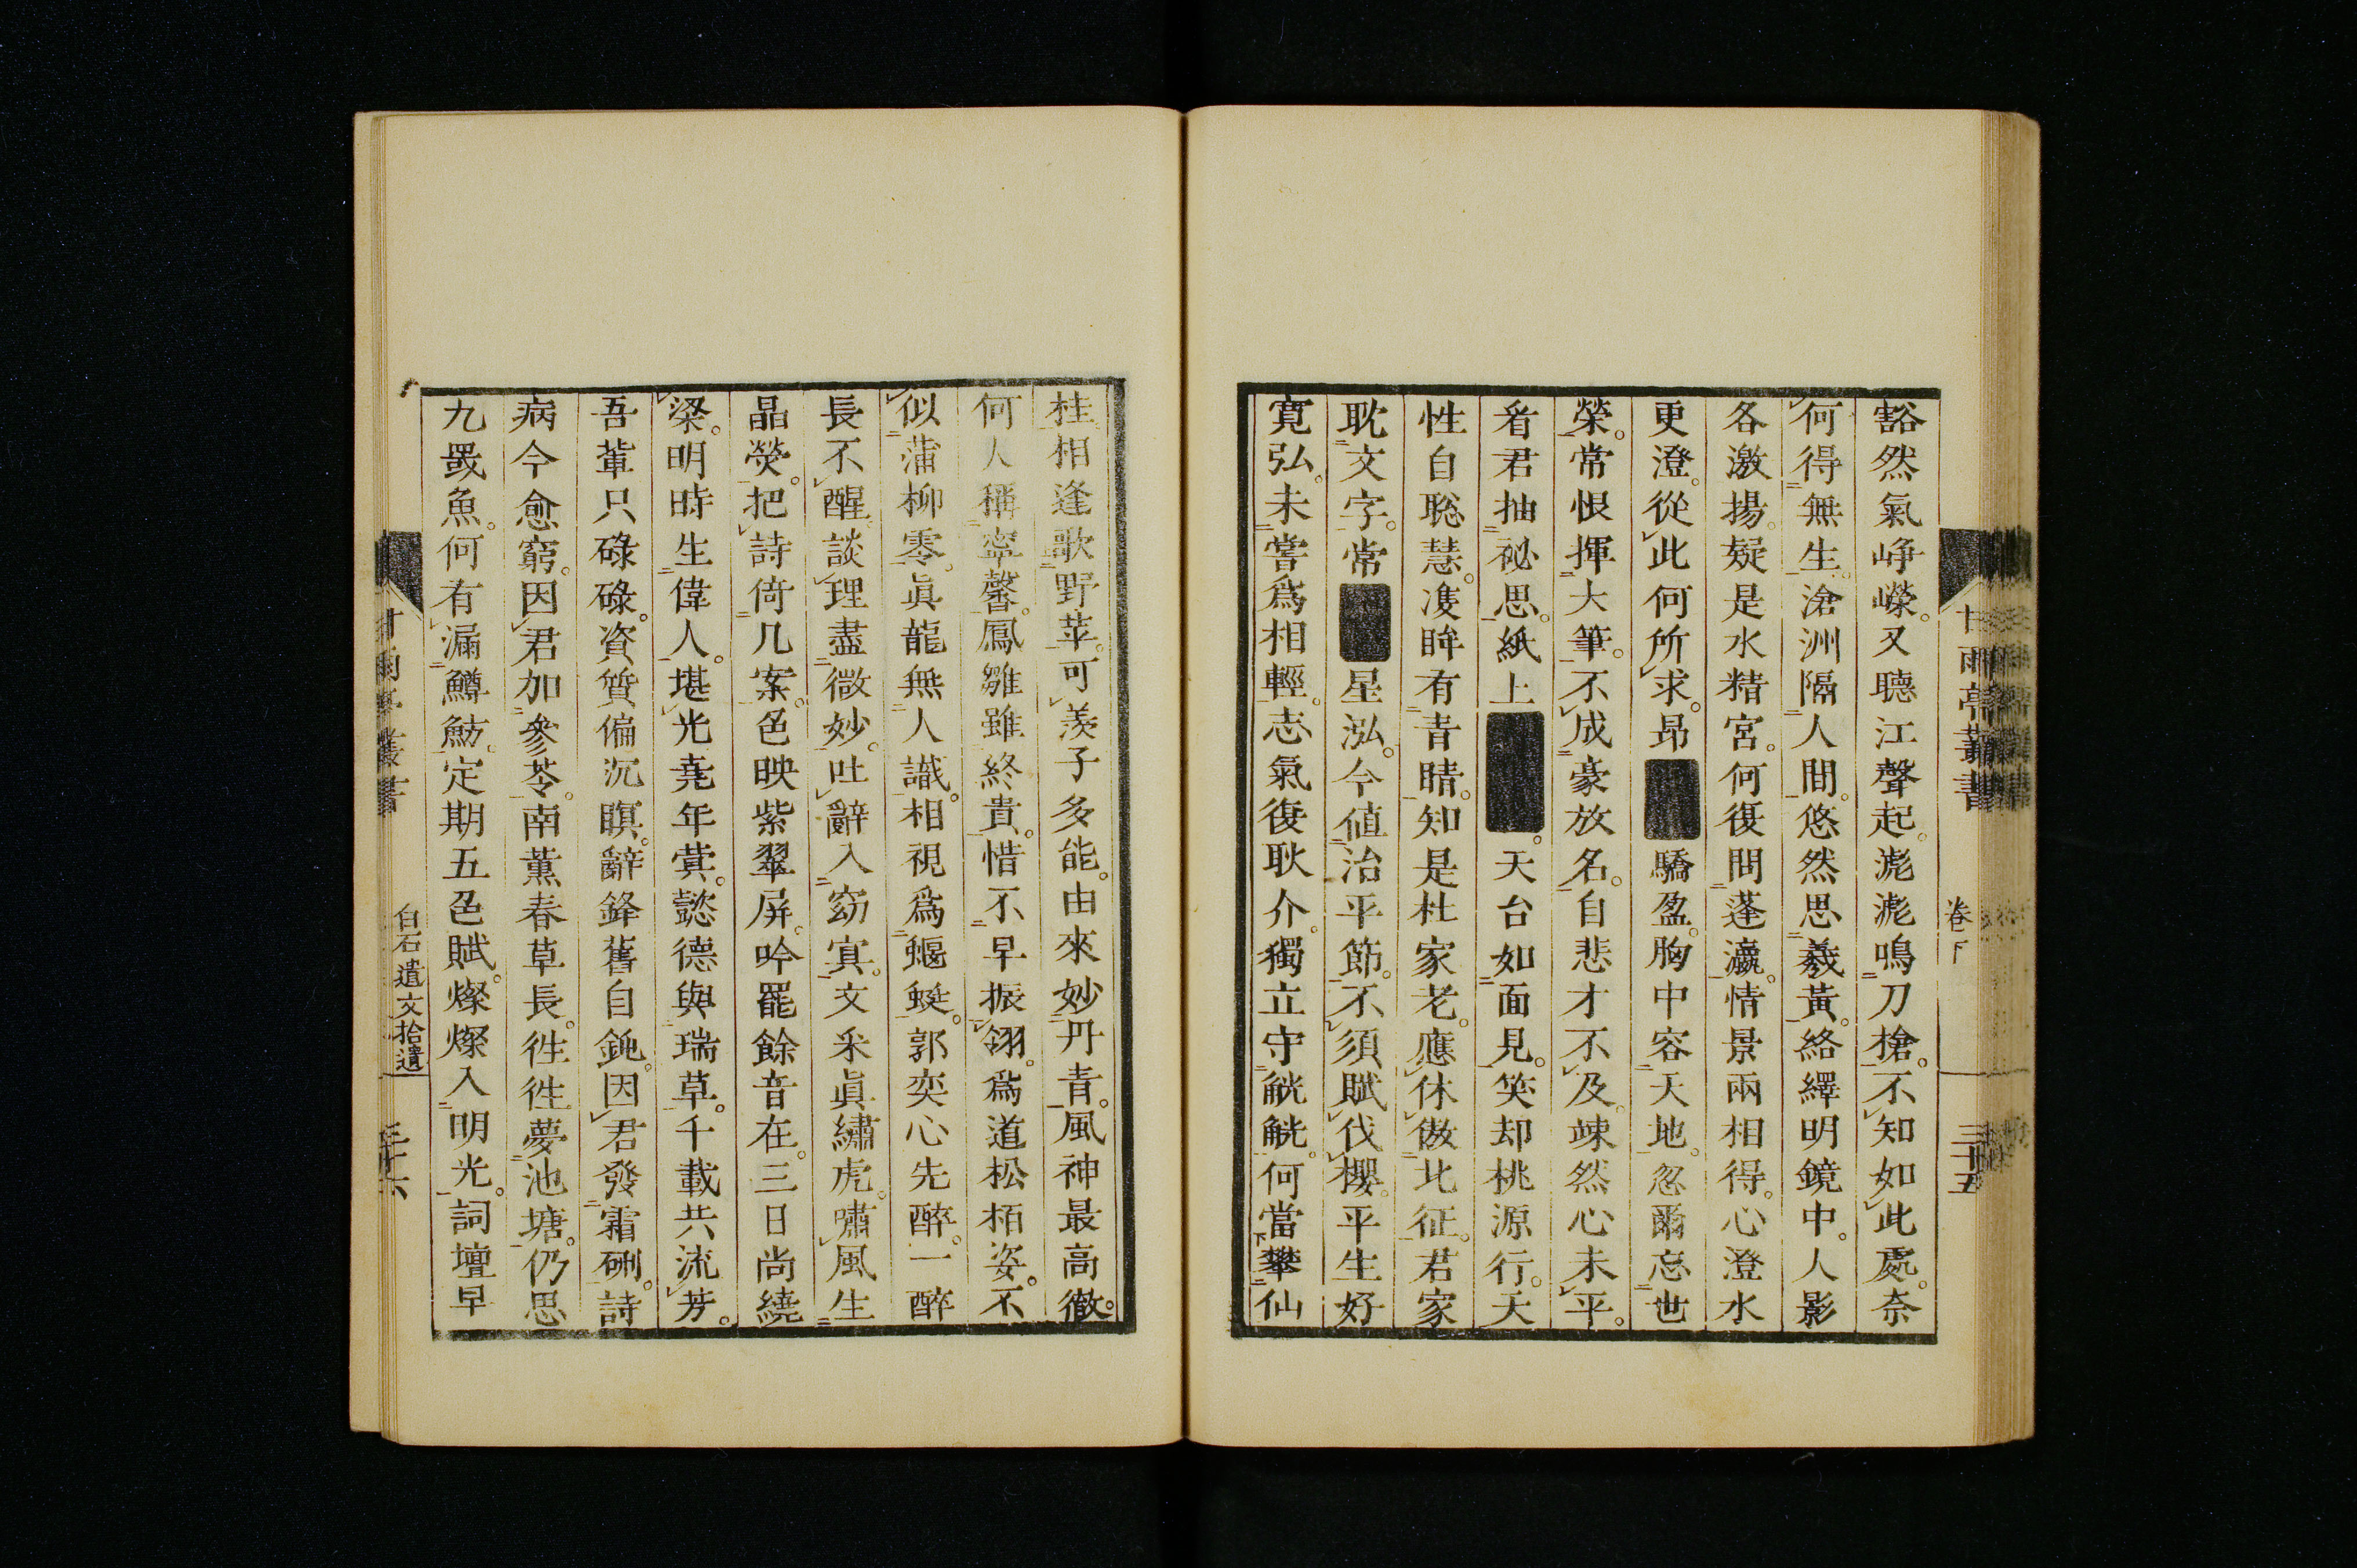 甘雨亭叢書
卷下
三十五
豁然氣崢嶸。又聽江聲起。滮滮鳴刀槍。不知如此處。奈
何得無生。滄洲隔人間。悠然思羲黃。絡繹明鏡中。人影
各激揚。疑是水精宮。何復問蓬瀛。情景兩相得。心澄水
更澄。從此何所求。昂■驕盈。胸中容天地。忽爾忘世
榮。常恨揮大筆。不成豪放名。自悲才不及。竦然心未平。
看君抽祕思。紙上■。天台如面見。笑却桃源行。天
性自聡慧。凄眸有青晴。知是杜家老。應休倣北征。君家
耽文字。常■星泓。今値治平節。不須賦伐櫻。平生好
寛弘。未嘗爲相輕。志氣復耿介。獨立守觥觥。何當下攀仙
桂相逢歌野苹。可羨子多能。由來妙丹青。風神最高徹。
何人稱寧馨。鳳雛雖終貴。惜不早振翎。爲道松栢姿。不
似蒲柳零。眞龍無人識。相視爲蝘蜓。郭奕心先醉。一醉
長不醒。談理盡微妙。吐辭入窈㝠。文釆眞繡虎。嘯風生
晶熒。把詩倚几案。色映紫翠屏。吟罷餘音在。三日尚繞
梁。明時生偉人。堪光堯年蓂。懿德與瑞草。千載共流芳。
吾軰只碌碌。資質偏沉瞑。辭鋒舊自鈍。因君發霜硎。詩
病今愈窮。因君加參苓。南薫春草長。徃徃夢池塘。仍思
九罭魚。何有漏鱒魴。定期五色賦。燦燦入明光。詞壇早
甘雨亭叢書
白石遺文拾遺
三十六